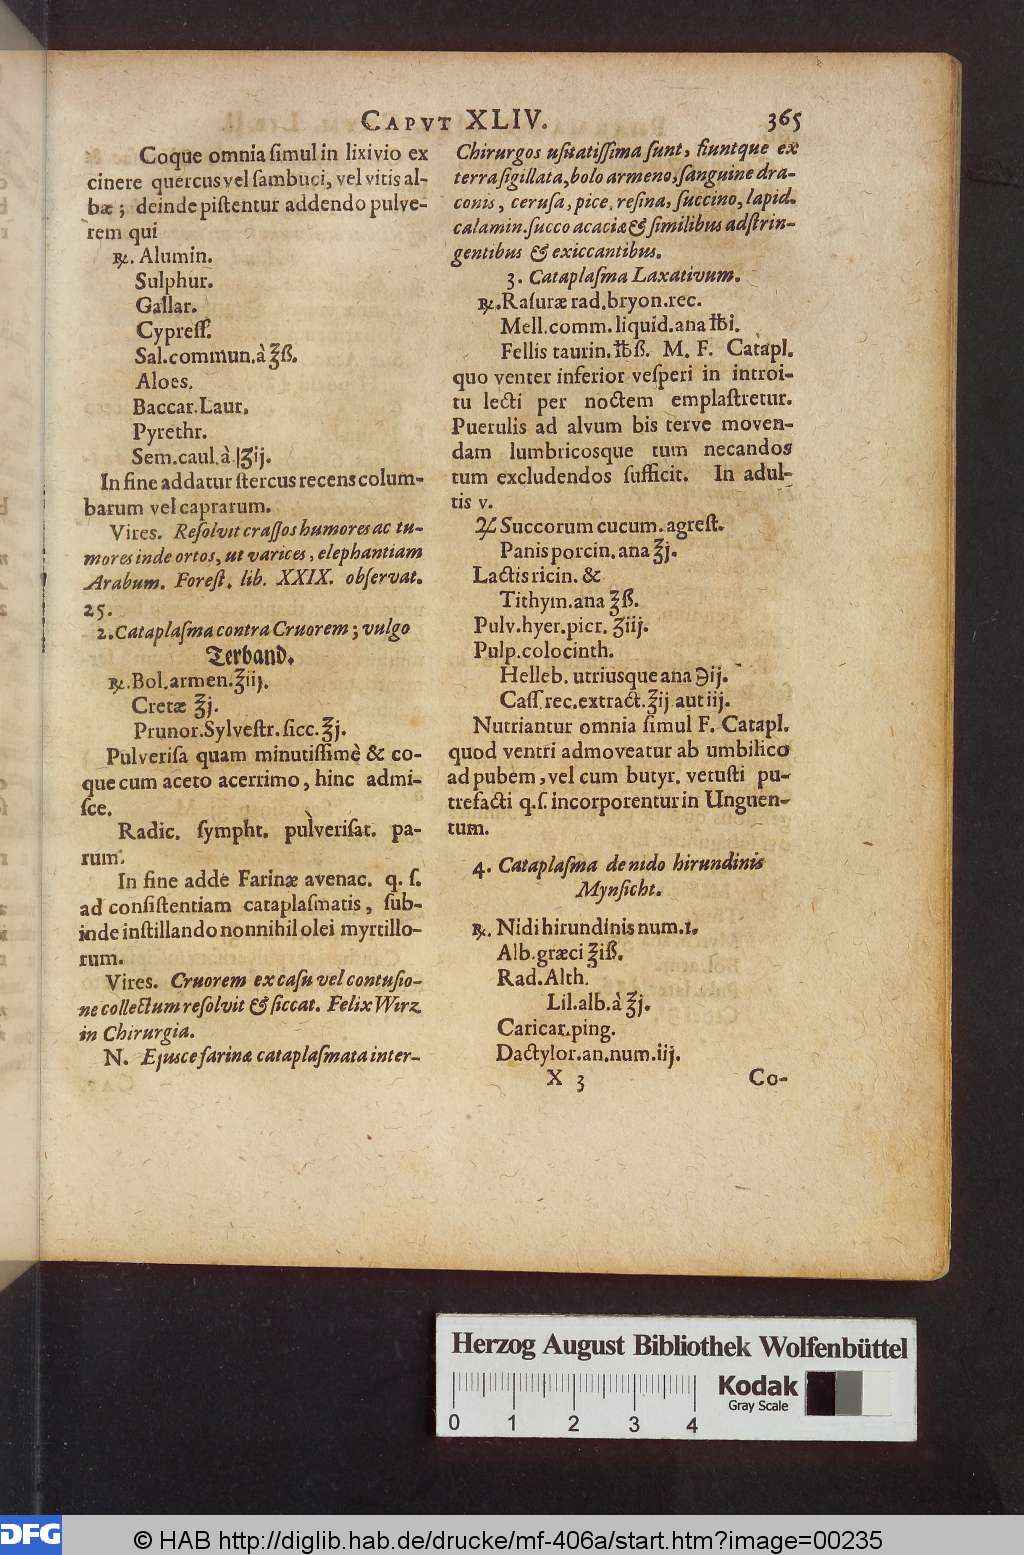 CAPVT XLIV.
365
Coque omnia ſimul in lixivio ex
cinere quercus vel ſambuci, vel vitis al-
bæ; deinde piſtentur addendo pulve-
rem qui
℞. Alumin.
Sulphur.
Gallar.
Cypreſſ.
Sal. commun. à ℥ß.
Aloes.
Baccar. Laur.
Pyrethr.
Sem. caul. à ʒij.
In fine addatur ſtercus recens colum-
barum vel caprarum.
Vires. Reſolvit craſſos humores ac tu-
mores inde ortos, ut varices, elephantiam
Arabum. Foreſt. lib. XXIX. obſervat.
25.
2. Cataplaſma contra Cruorem; vulgo
Terband.
℞. Bol. armen. ℥iij.
Cretæ ℥j.
Prunor. Sylveſtr. ſicc. ℥j.
Pulveriſa quam minutiſſimè & co-
que cum aceto acerrimo, hinc admi-
ſce.
Radic. ſympht. pulveriſat. pa-
rum.
In fine adde Farinæ avenac. q. ſ.
ad conſiſtentiam cataplaſmatis, ſub-
inde inſtillando nonnihil olei myrtillo-
rum.
Vires. Cruorem ex caſu vel contuſio-
ne collectum reſolvit & ſiccat. Felix Wirz
in Chirurgia.
N. Ejusce farinæ cataplaſmata inter-
Chirurgos uſitatiſſima ſunt, fiuntque ex
terra ſigillata, bolo armeno, ſanguine dra-
conis, ceruſa, pice, reſina, ſuccino, lapid.
calamin. ſucco acaciæ & ſimilibus adſtrin-
gentibus & exiccantibus.
3. Cataplaſma Laxativum.
℞. Raſuræ rad. bryon. rec.
Mell. comm. liquid. ana ℔i.
Fellis taurin. ℔ß. M. F. Catapl.
quo venter inferior veſperi in introi-
tu lecti per noctem emplaſtretur.
Puerulis ad alvum bis terve moven-
dam lumbricosque tum necandos
tum excludendos ſufficit. In adul-
tis v.
♃ Succorum cucum. agreſt.
Panis porcin. ana ℥j.
Lactis ricin. &
Tithym. ana ℥ß.
Pulv. hyer. picr. ʒiij.
Pulp. colocinth.
Helleb. utriusque ana ℈ij.
Caſſ. rec. extract. ℥ij aut iij.
Nutriantur omnia ſimul F. Catapl.
quod ventri admoveatur ab umbilico
ad pubem, vel cum butyr. vetuſti pu-
trefacti q. ſ. incorporentur in Unguen-
tum.
4. Cataplaſma de nido hirundinis
Mynſicht.
℞. Nidi hirundinis num. 1.
Alb. græci ℥iß.
Rad. Alth.
Lil. alb. à ℥j.
Caricar. ping.
Dactylor. an. num. iij.
X 3
Co-
Herzog August Bibliothek Wolfenbüttel
Kodak
Gray Scale
0 1 2 3 4
DFG
© HAB http://diglib.hab.de/drucke/mf-406a/start.htm?image=00235